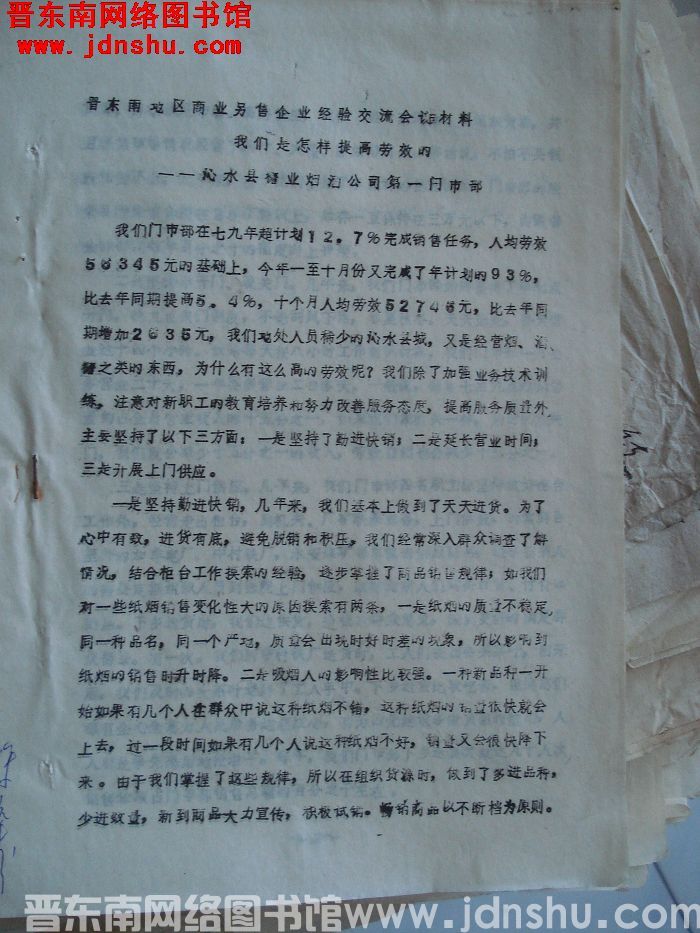 晋东南网络图书馆
www.jdnshu.com
晋东南地区商业另售企业经验交流会议材料
我们是怎样提高劳效的
——沁水县糖业烟酒公司第一门市部
我们门市部在七九年超计划12。7%完成销售任务，人均劳效
56345元的基础上，今年一至十月份又完成了年计划的93%，
比去年同期提高5。4%，十个月人均劳效52746元，比去年同
期增加2635元，我们地处人员稀少的沁水县城，又是经营烟、酒、
糖之类的东西，为什么有这么高的劳效呢？我们除了加强业务技术训
练，注意对新职工的教育培养和努力改善服务态度，提高服务质量外，
主要坚持了以下三方面：一是坚持了勤进快销；二是延长营业时间；
三是开展上门供应。
一是坚持勤进快销，几年来，我们基本上做到了天天进货。为了
心中有数，进货有底，避免脱销和积压，我们经常深入群众调查了解
情况，结合柜台工作摸索的经验，逐步掌握了商品销售规律；如我们
对一些纸烟销售变化性大的原因摸索有两条，一是纸烟的质量不稳定，
同一种品名，同一个产地，质量会出现时好时差的现象，所以影响到
纸烟的销售时升时降。二是吸烟人的影响性比较强。一种新品种一开
始如果有几个人在群众中说这种纸烟不错，这种纸烟的销量很快就会
上去，过一段时间如果有几个人说这种纸烟不好，销量又会很快降下
来。由于我们掌握了这些规律，所以在组织货源时，做到了多进品种，
少进数量，新到商品大力宣传，积极试销。畅销商品以不断档为原则。
晋东南网络图书馆 www.jdnshu.com